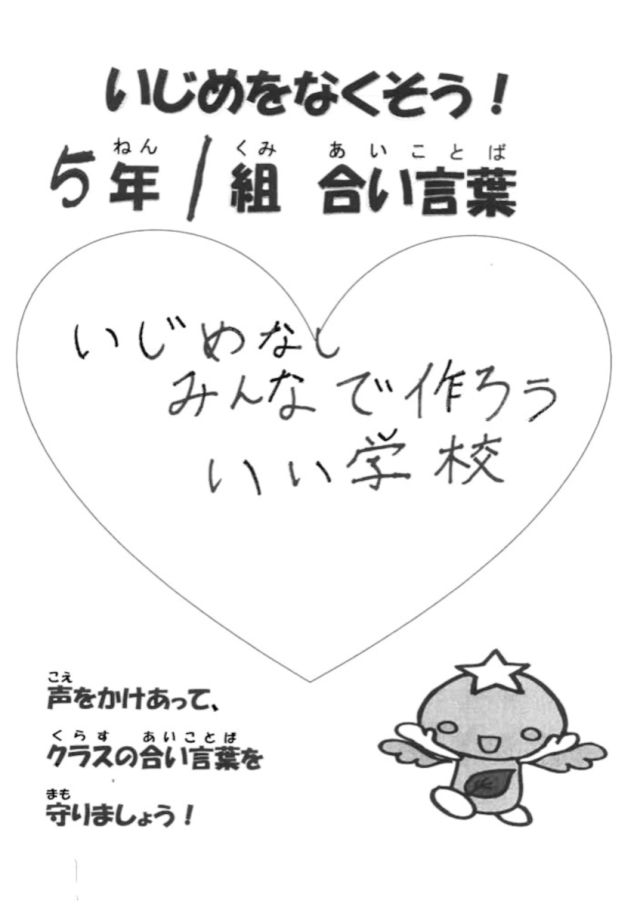 いじめをなくそう！
ねん くみ あいことば
5年 1組 合い言葉
いじめなし
みんなで作ろう
いい学校
こえ
声をかけあって、
くらす あいことば
クラスの合い言葉を
まも
守りましょう！